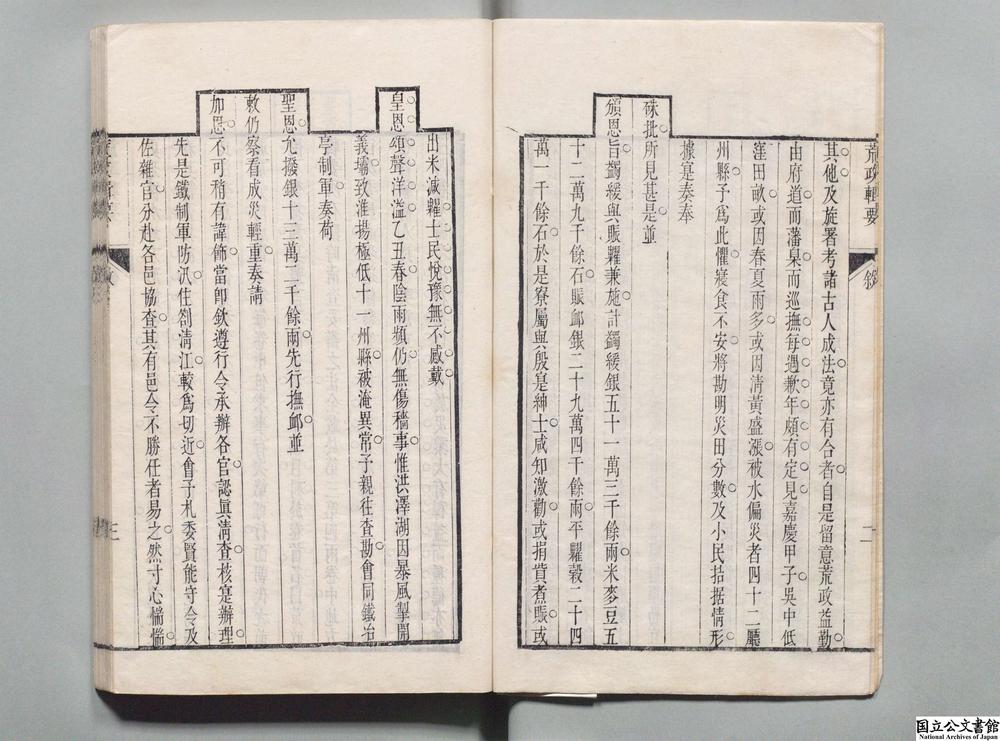 荒政輯要
敘
二
其他及旋署考諸古人成法竟亦有合者自是留意荒政益勤
由府道而藩臬而巡撫每遇歉年頗有定見嘉慶甲子吳中低
窪田畝或因春夏雨多或因清黃盛漲被水偏災者四十二廳
州縣予爲此懼寢食不安將勘明災田分數及小民拮据情形
據寔奏奉
硃批所見甚是並
頒恩旨蠲緩與賑糶兼施計蠲緩銀五十一萬三千餘兩米麥豆五
十二萬九千餘石賑卹銀二十九萬四千餘兩平糶榖二十四
萬一千餘石於是寮屬與殷寔紳士咸知激勸或捐貲煮賑或
出米減糶士民悅豫無不感戴
皇恩頌聲洋溢乙丑春陰雨頻仍無傷穡事惟洪澤湖因暴風掣開
義壩致淮揚極低十一州縣被淹異常予親往查勘會同鐵冶
亭制軍奏荷
聖恩允撥銀十三萬二千餘兩先行撫卹並
敕仍察看成災輕重奏請
加恩不可稍有諱飾當卽欽遵行令承辦各官認眞清查核寔辦理
先是鐵制軍防汛住劄清江較爲切近會予札委賢能守令及
佐雜官分赴各邑協查其有邑令不勝任者易之然寸心惴惴
三
国立公文書館
National Archives of Japan